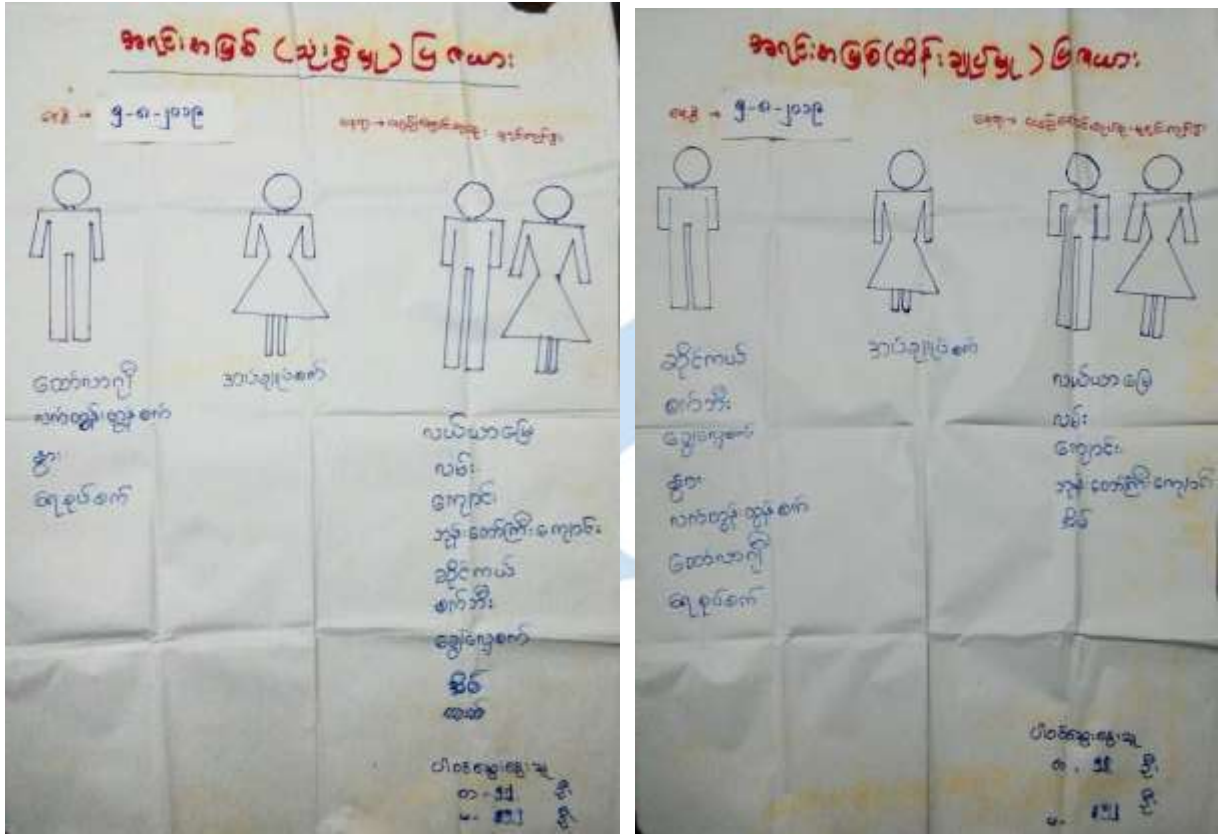 အရင်းအမြစ် (သုံးစွဲမှု) ပြဇယား
နေ့စွဲ → ၅-၈-၂၀၁၉
ထော်လာဂျီ
လက်တွန်းထွန်စက်
နွား
ရေစုပ်စက်
အပ်ချုပ်စက်
လယ်ယာမြေ
လမ်း
ကျောင်း
ဘုန်းတော်ကြီးကျောင်း
ဆိုင်ကယ်
စက်ဘီး
ခြွေလှေ့စက်
အိမ်
ပါဝင်ဆွေးနွေးသူ
ကျား - ဦး
မ - ဦး
အရင်းအမြစ် (ထိန်းချုပ်မှု) ပြဇယား
နေ့စွဲ → ၅-၈-၂၀၁၉
ဆိုင်ကယ်
စက်ဘီး
ခြွေလှေ့စက်
နွား
လက်တွန်းထွန်စက်
ထော်လာဂျီ
ရေစုပ်စက်
အပ်ချုပ်စက်
လယ်ယာမြေ
လမ်း
ကျောင်း
ဘုန်းတော်ကြီးကျောင်း
အိမ်
ပါဝင်ဆွေးနွေးသူ
ဦး
မ - ဦး